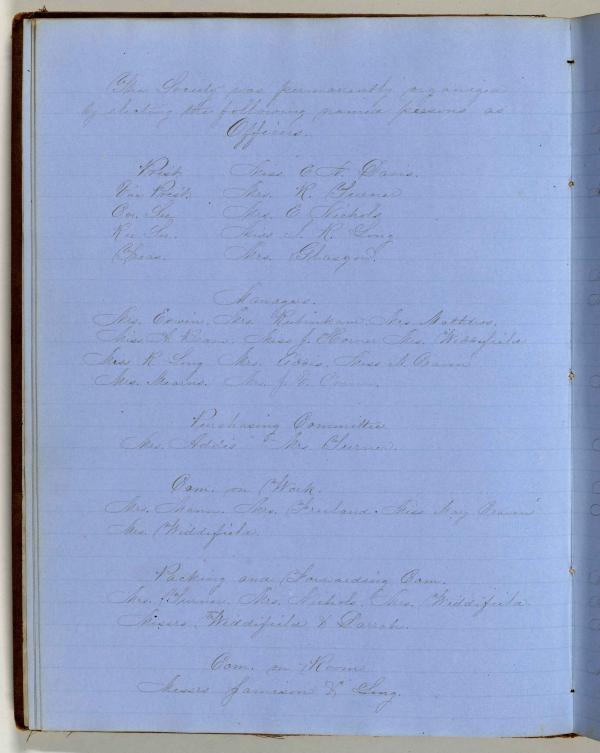 This Society was permanently organized
by electing the following named persons as
Officers.
Prest. Miss C. N. Davis.
Vice Prest. Mrs. R. Turner
Cor. Sec. Mrs. E. Nichols
Rec Sec. Miss S. R. Long
Treas. Mrs. Glasgow.
Managers.
Mrs. Erwin, Mrs. Rubinkam, Mrs. Matthews.
Miss A. Miss J. Horner Mrs. Widdifield
Miss R. Long Mrs. Addis, Miss M. Craven
Mrs. Mearns. Mrs. J. V. Craven.
Purchasing Committee
Mrs. Addis & Mrs. Turner.
Com. on Work.
Mrs. Mann. Mrs. Freeland. Miss May Craven
Mrs. Widdifield.
Packing and Forwarding Com.
Mrs. Turner. Mrs. Nichols, Mrs. Widdifield.
Messrs Widdifield & Darrah.
Com. on Room
Messrs Jamison & Long.